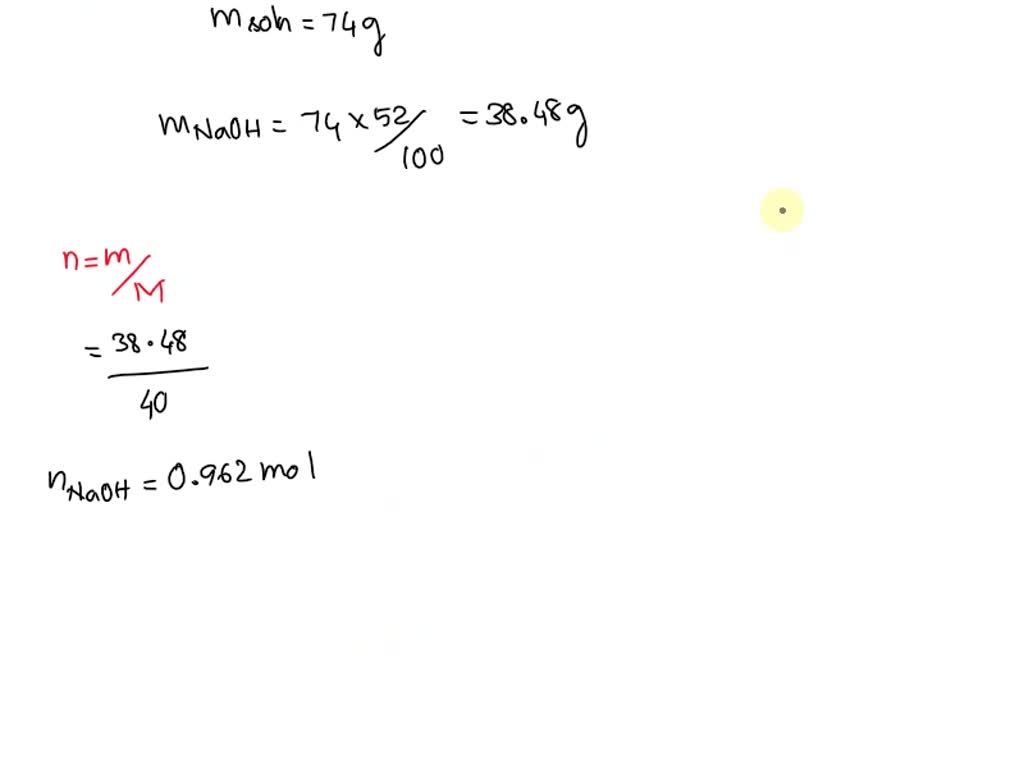 m soln = 74g
mNaOH = 74 × 52/100 = 38.48g
n = m/M
= 38.48
40
nNaOH = 0.962 mol